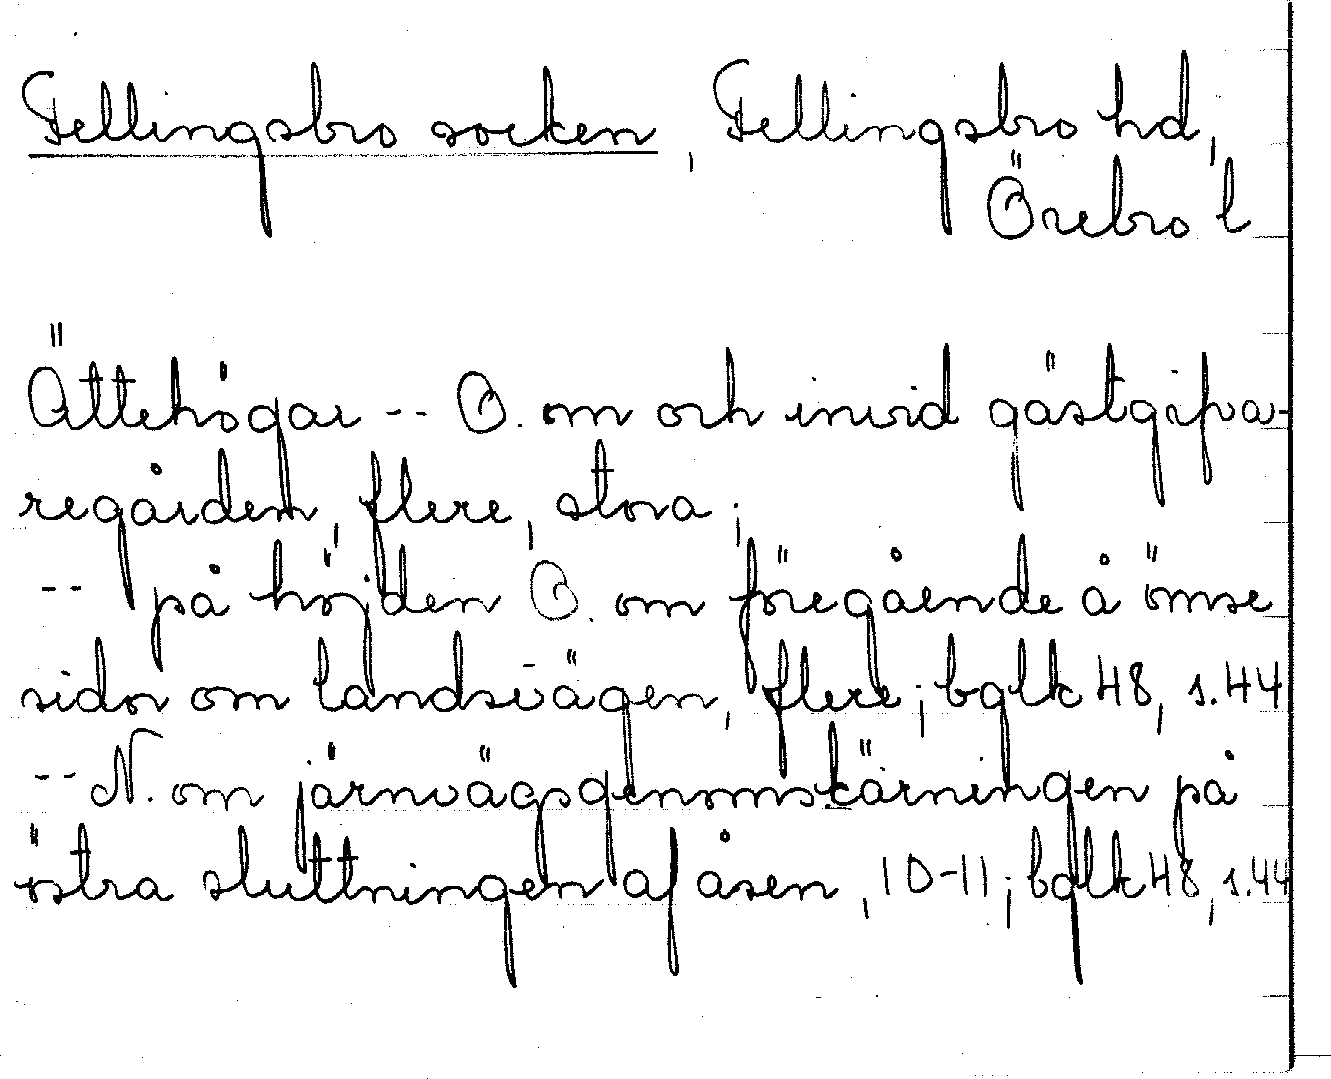 Fellingsbro socken, Fellingsbro hd,
Örebro l
Ättehögar -- Ö. om och invid gästgifva-
regården, flere, stora;
-- på höjden Ö. om föregående å ömse
sidor om landsvägen, flere; bglk 48, s. 44
-- N. om järnvägsgenomskärningen på
östra sluttningen af åsen, 10-11; bglk 48, s. 44